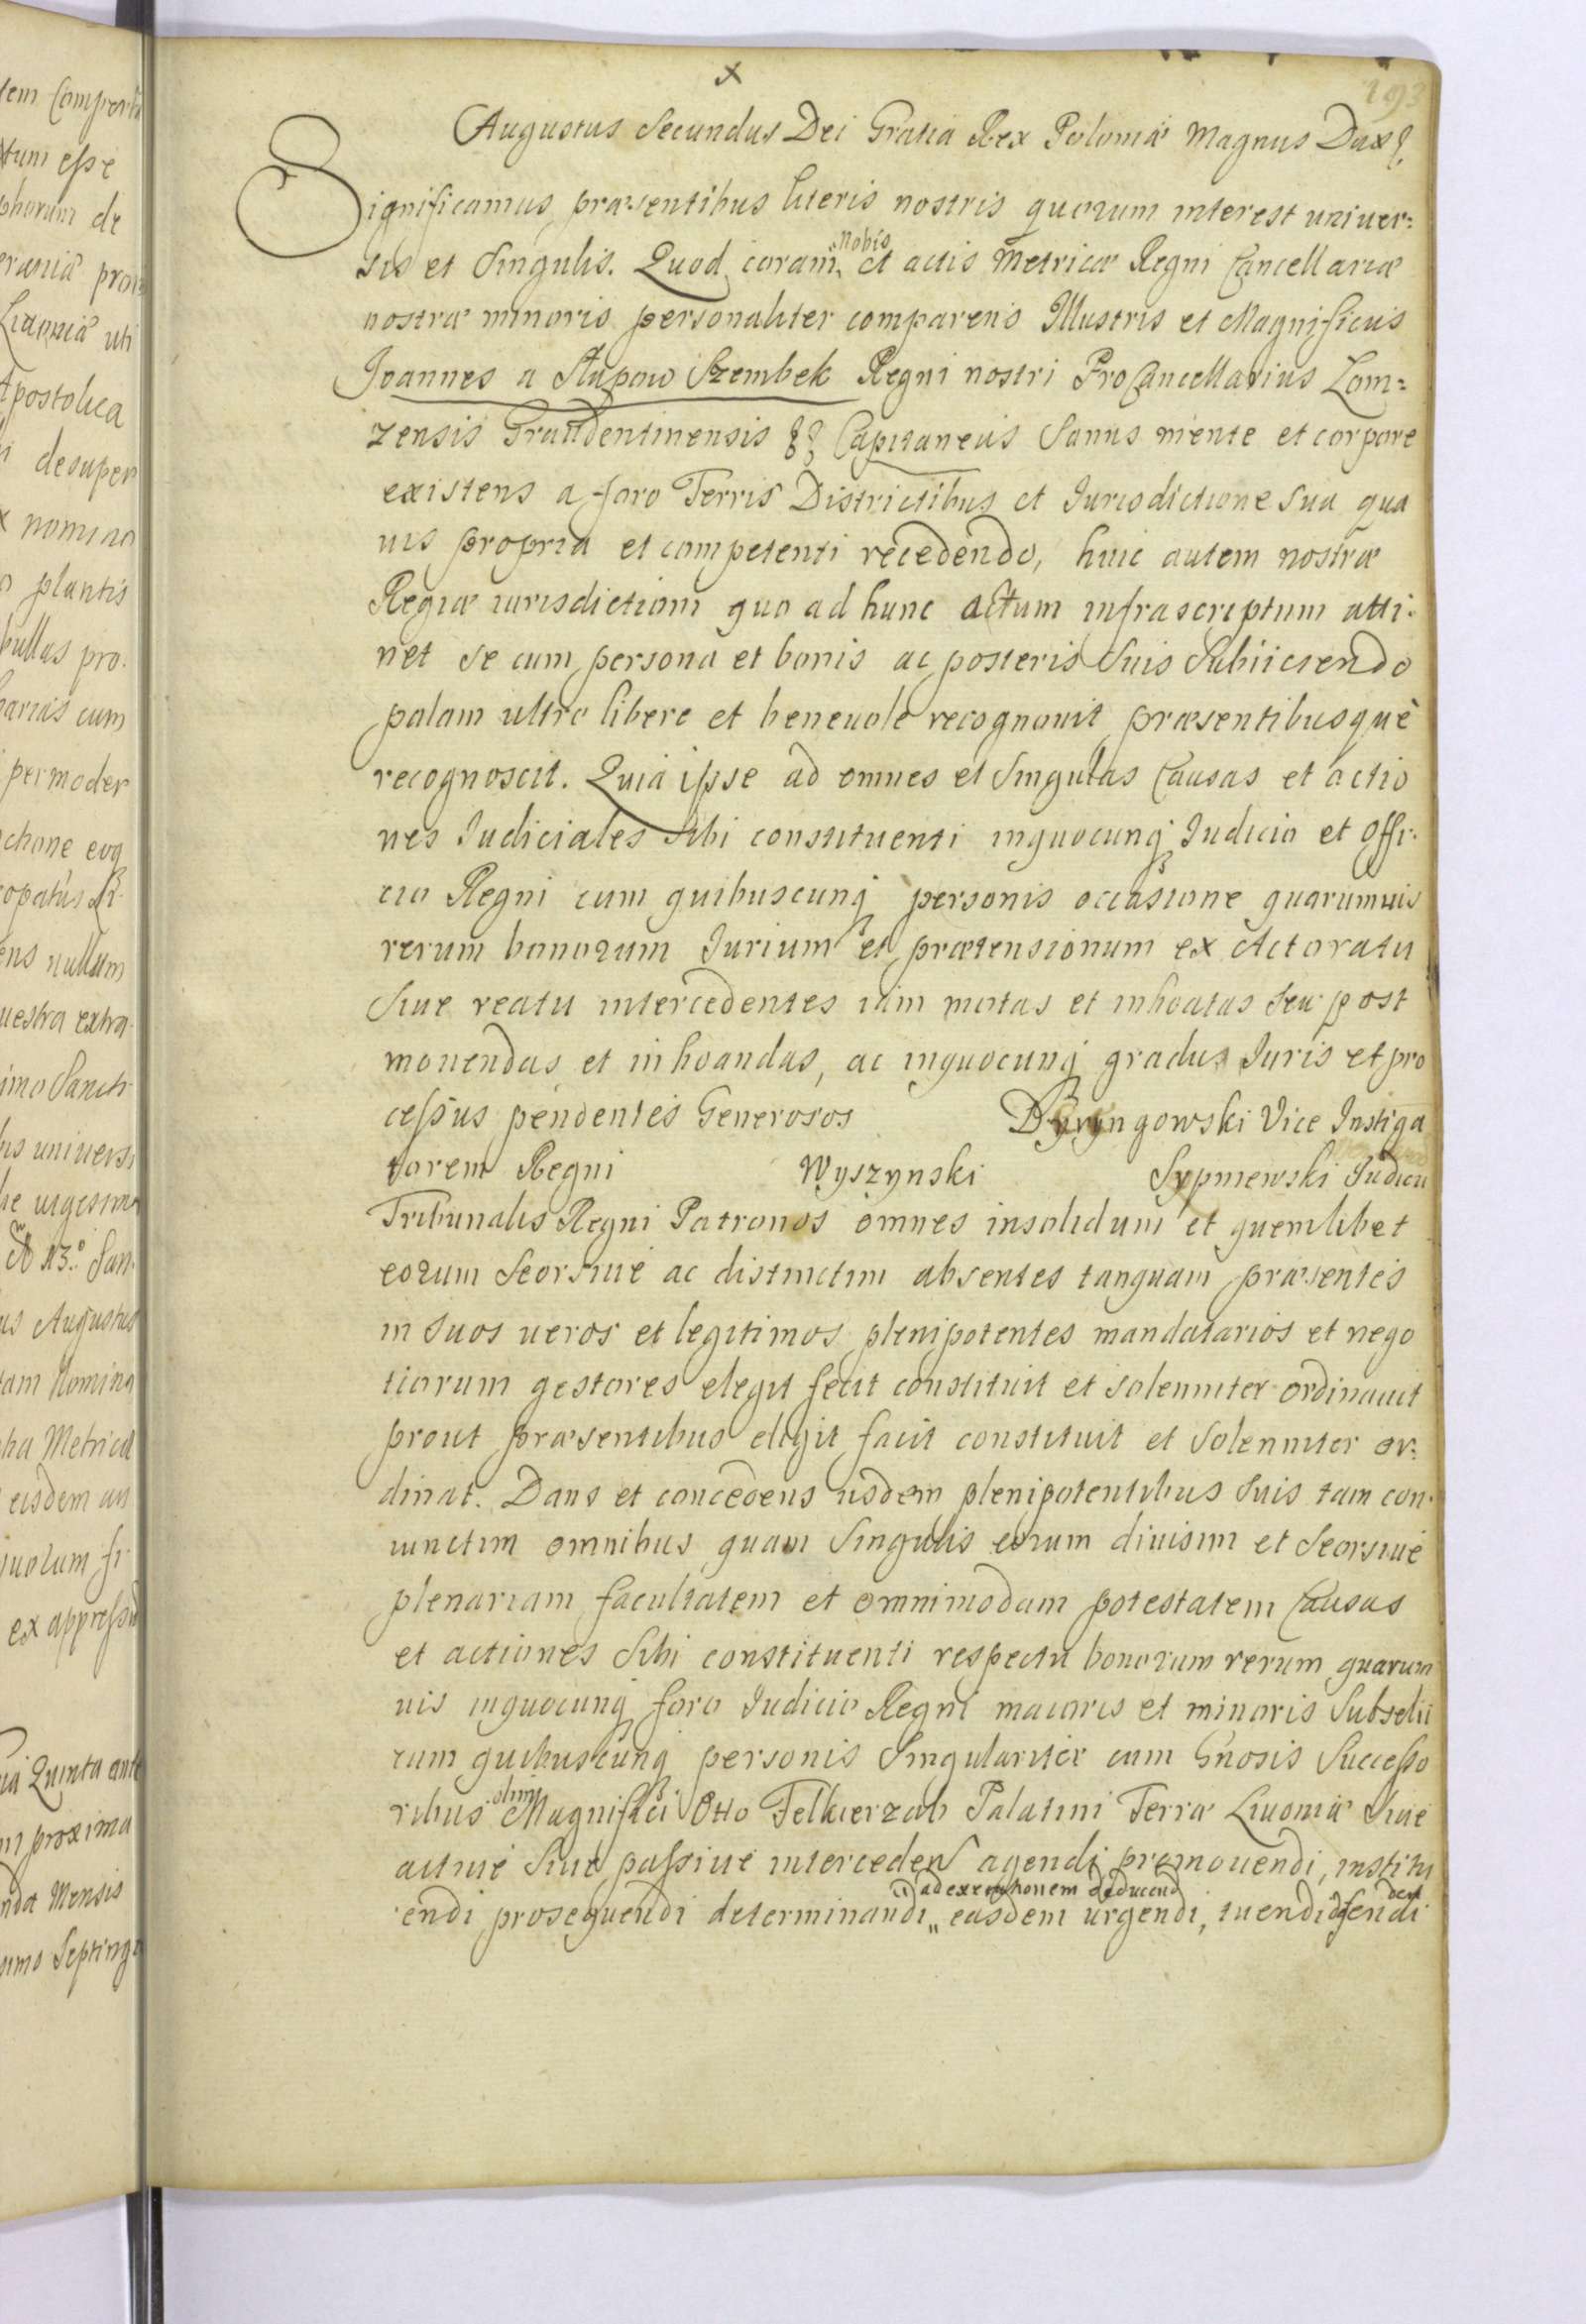 x
193
Augustus Secundus Dei Gratia Rex Poloniæ Magnus Dux &
Significamus præsentibus literis nostris quorum interest univer=
sis et Singulis. Quod coram Nobis et actis Metricæ Regni Cancellariæ
nostræ minoris personaliter comparens Illustris et Magnificus
Joannes a Słupow Szembek Regni nostri ProCancellarius Łom=
zensis Graudentinensis && Capitaneus Sanus mente et corpore
existens a foro Terris Districtibus et Jurisdictione sua qua
uis propria et competenti recedendo, huic autem nostræ
Regiæ iurisdictioni quo ad hunc actum infrascriptum atti:
net se cum persona et bonis ac posteris Suis Subiiciendo
palam ultro libere et beneuole recognouit præsentibusquè
recognoscit. Quia ipse ad omnes et Singulas Causas et actio
nes Judiciales Sibi constituenti inquocunq Judicio et Offi:
cio Regni cum quibuscunq personis occasione quarumuis
rerum bonorum Jurium et prætensionum ex Actoratu
Siue reatu intercedentes iam motas et inhoatas Seu post
mouendas et inhoandas, ac inquocunq gradu Juris et pro
cessus pendentes Generosos Dyryngowski Vice Instiga
torem Regni Wyszynski Sypniewski Judicii
Tribunalis Regni Patronos omnes insolidum et quemlibet
eorum Seorsiue ac distinctim absentes tanquam præsentes
in Suos ueros et legitimos plenipotentes mandatarios et nego
tiorum gestores elegit fecit constituit et solenniter ordinauit
prout præsentibus eligit facit constituit et Solenniter or:
dinat. Dans et concedens iisdem plenipotentibus Suis tam con:
iunctim omnibus quam Singulis eorum diuisim et Seorsiue
plenariam facultatem et omnimodam potestatem Causas
et actiones Sibi constituenti respectu bonorum rerum quarum
uis inquocunq foro Judicio Regni maioris et minoris Subselii
cum quibuscunq personis Singulariter cum Gnosis Successo
ribus olim Magnifici Otto Felkierzab Palatini Terræ Liuoniæ Siue
actiue Siue passiue interceden agendi promouendi, institu
endi prosequendi determinandi ad exequutionem deducend easdem urgendi, tuendi defendi